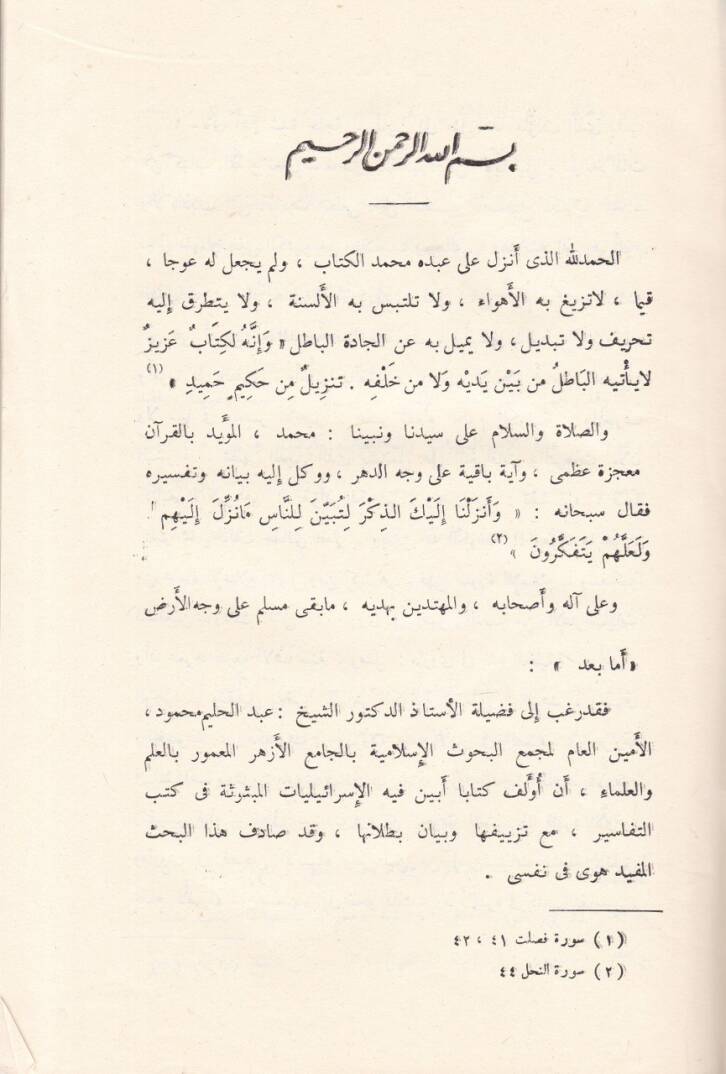 بسم الله الرحمن الرحيم
الحمدلله الذى أنزل على عبده محمد الكتاب ، ولم يجعل له عوجا ،
قيما ، لاتزيغ به الأهواء ، ولا تلتبس به الألسنة ، ولا يتطرق إليه
تحريف ولا تبديل، ولا يميل به عن الجادة الباطل « وَإِنَّهُ لَكِتَابٌ عَزِيزٌ
لايأْتيه البَاطلُ من بَيْن يَديْه وَلا من خَلْفِه . تنزِيلٌ مِن حَكِيمٍ حَمِيدِ » (١)
والصلاة والسلام على سيدنا ونبينا : محمد ، المؤيد بالقرآن
معجزة عظمى ، وآية باقية على وجه الدهر ، ووكل إليه بيانه وتفسيره
فقال سبحانه : « وَأَنزَلْنَا إِلَيْكَ الذِكْرَ لِتُبَيّنَ لِلنَّاسِ مَانُزِّلَ إِلَيْهِم
وَلَعَلَّهُمْ يَتَفَكَّرُونَ » (٢)
وعلى آله وأصحابه ، والمهتدين بهديه ، مابقى مسلم على وجه الأرض
«أما بعد » :
فقدرغب إلى فضيلة الأستاذ الدكتور الشيخ : عبد الحليم محمود ،
الأمين العام لمجمع البحوث الإسلامية بالجامع الأزهر المعمور بالعلم
والعلماء ، أن أُؤلف كتابا أبين فيه الإسرائيليات المبثوثة فى كتب
التفاسير ، مع تزييفها وبيان بطلانها ، وقد صادف هذا البحث
المفيد هوى فى نفسى .
(١) سورة فصلت ٤١ ، ٤٢
(٢) سورة النحل ٤٤